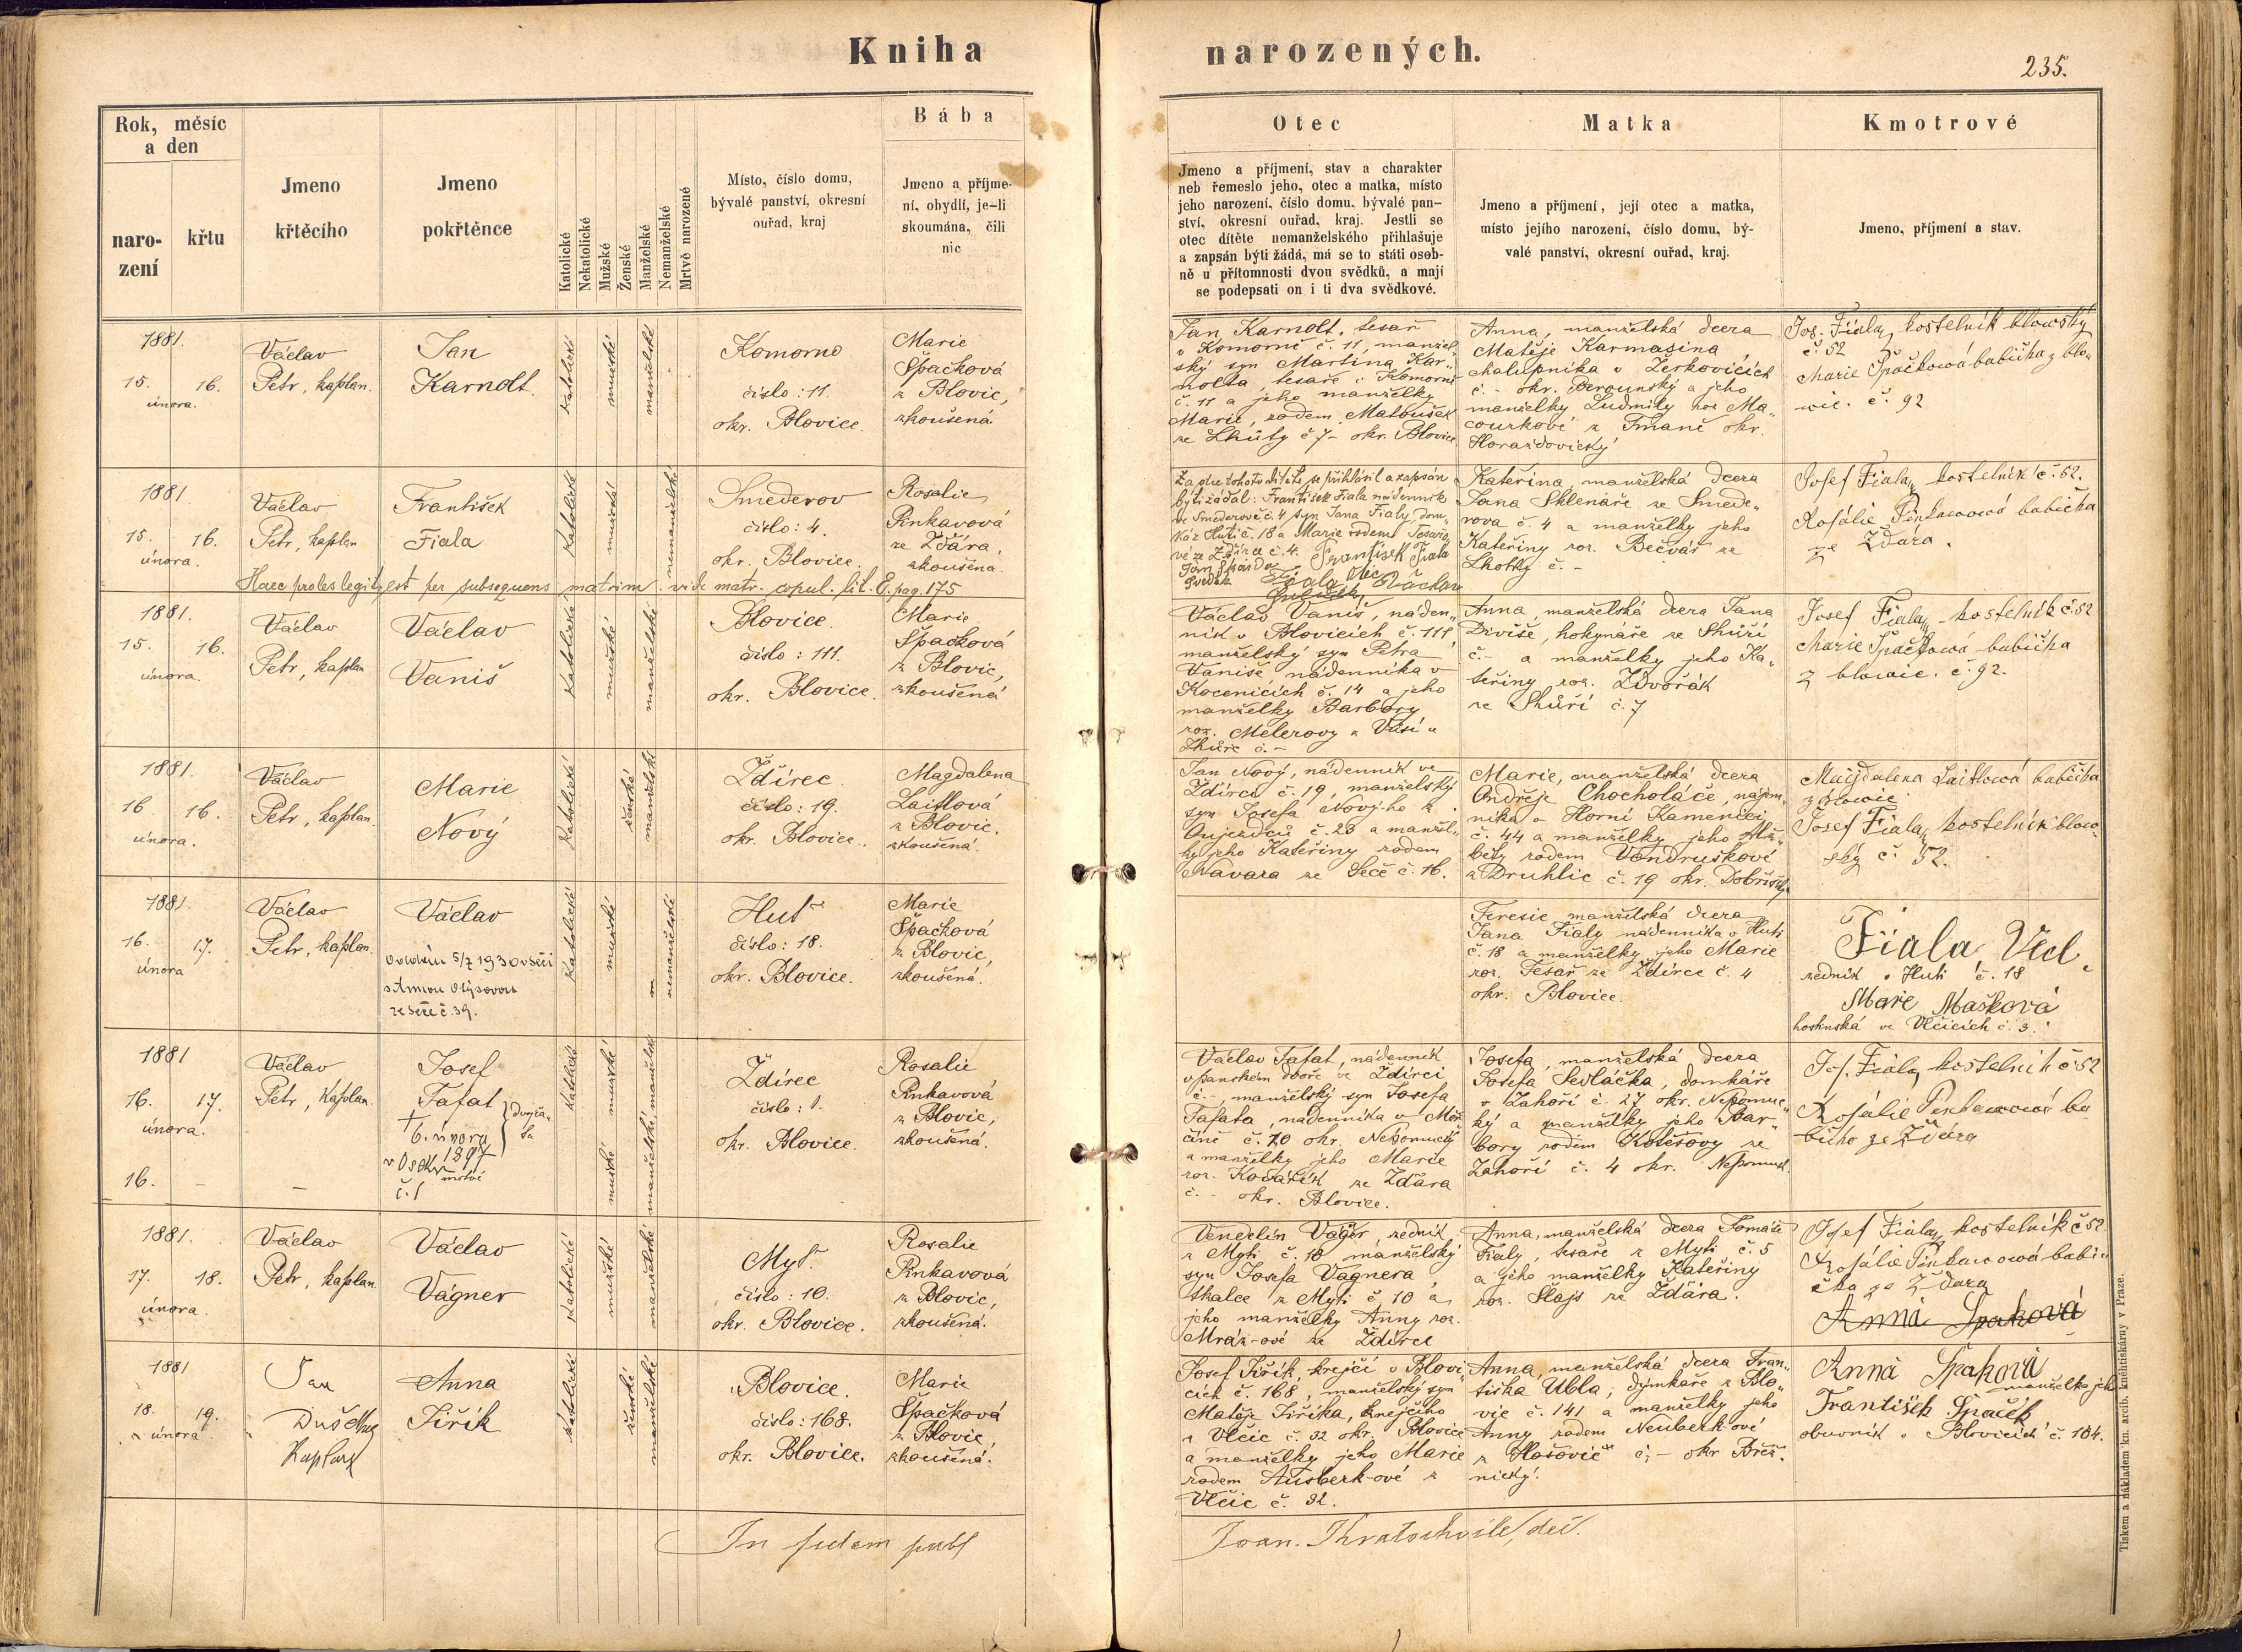 Kniha narozených.
235.
Rok, měsíc
a den
naro-
zení
křtu
Jmeno
křtěcího
Jmeno
pokřtěnce
Katolické
Nekatolické
Mužské
Ženské
Manželské
Nemanželské
Mrtvě narozené
Místo, číslo domu,
bývalé panství, okresní
ouřad, kraj
Bába
Jmeno a příjme-
ní, obydlí, je-li
skoumána, čili
nic
Otec
Jmeno a příjmení, stav a charakter
neb řemeslo jeho, otec a matka, místo
jeho narození, číslo domu, bývalé pan-
ství, okresní ouřad, kraj. Jestli se
otec dítěte nemanželského přihlašuje
a zapsán býti žádá, má se to státi osob-
ně u přítomnosti dvou svědků, a mají
se podepsati on i ti dva svědkové.
Matka
Jmeno a příjmení, její otec a matka,
místo jejího narození, číslo domu, bý-
valé panství, okresní ouřad, kraj.
Kmotrové
Jmeno, příjmení a stav.
1881.
15. 16.
února.
Václav
Petr, kaplan.
Jan
Karnolt.
katolické
mužské
manželské
Komorno
číslo: 11.
okr. Blovice.
Marie
Špačková
z Blovic,
zkoušená
Jan Karnolt, tesař
v Komorně č. 11, manžel„
ský syn Martina Kar„
nolta, tesaře v Komorně
č. 11 a jeho manželky
Marie, rodem Matoušek
ze Lhůty č 7- okr. Blovice.
Anna, manželská dcera
Matěje Karmasina
chalupníka v Žerkovicích
č. - okr. Berounský a jeho
manželky Ludmily roz Ma„
courkové z Tmaně okr.
Horažďovický
Jos. Fiala, kostelník blowský
č. 52
Marie Špačkowá babička z blo„
wic. č. 92
1881
15. 16.
února.
Václav
Petr, kaplan
František
Fiala
katolické
mužské
nemanželské
Smederov
číslo: 4.
okr. Blovice.
Rosalie
Pinkavová
ze Žďára,
zkoušena.
Za otce tohoto dítěte se přihlásil a zapsán
býti žádal: František Fiala nádenník
ve Smederově č. 4 syn Jana Fialy, dom„
káře z Huti č. 18 a Marie rodem Tesařo„
vé ze Ždírce č. 4. František Fiala
otec
Kateřina, manželská dcera
Jana Sklenáře ze Smede„
rova č. 4 a manželky jeho
Kateřiny roz. Bečvář ze
Lhotky č. -
Josef Fiala, kostelník č. 52.
Rosálie Pinkawowá babička
ze Ždára.
Haec proles legit. est per subsequens matrim. vide matr. copul. lit. E. pag. 175
1881.
15. 16.
února.
Václav
Petr, kaplan
Václav
Vaniš
katolické
mužské
manželské
Blovice.
číslo: 111.
okr. Blovice.
Marie
Špačková
z Blovic,
zkoušená
Václav Vaniš, náden„
ník v Blovicích č. 111,
manželský syn Petra
Vaniše, nádenníka v
Kocenicích č. 14 a jeho
manželky Barbory
roz. Melerovy
Anna, manželská dcera Jana
Diviše, hokynáře ze
č. - a manželky jeho Ka„
teřiny roz. Zdvořák
č. 7
Josef Fiala, kostelník č 52
Marie Špačkowá babička
z blowic. č. 92.
1881.
16 16.
února.
Václav
Petr, kaplan.
Marie
Nový
katolické
ženské
manželské
Ždírec
číslo: 19.
okr. Blovice.
Magdalena
Laitlová
z Blovic.
zkoušená.
Jan Nový, nádenník ve
Ždírci č. 19, manželský
syn Josefa Nového z
Oujezdců č. 23 a manžel„
ky jeho Kateřiny rodem
Navara ze Seče č. 16.
Marie, manželská dcera
Ondřeje Chocholáče, nájem„
níka v Horní Kamenici
č. 44 a manželky jeho Alž„
běty rodem Vondruškové
z Druhlic č. 19 okr. Dobříšský
Majdalena Laitlowá babička
z blowic
Josef Fiala, kostelník blow„
ský č. 52.
1881.
16. 17.
února
Václav
Petr, kaplan.
Václav
5/7 1930 v Seči
ze Seče č. 39.
katolické
mužské
nemanželské
Huť
číslo: 18.
okr. Blovice.
Marie
Špačková
z Blovic,
zkoušená.
Teresie manželská dcera
Jana Fialy nádenníka v Huti
č. 18 a manželky jeho Marie
roz. Tesař ze Ždírce č. 4
okr. Blovice.
Fiala, Vcl.
zedník v Huti č. 18
Marie Mašková
ve Vlčicích č. 3.
1881
16. 17.
února.
16. - -
Václav
Petr, Kaplan.
Josef
Tafat
dvojča„
ta
† 6. února
1897
v Oseku
č. 1
mrtvé
katolické
mužské mužské
manželské manželské
Ždírec
číslo: 1.
okr. Blovice.
Rosalie
Pinkavová
z Blovic,
zkoušená.
Václav Tafat, nádenník
v panském dvoře ve Ždírci
č. -, manželský syn Josefa
Tafata, nádenníka v
č. 70 okr. Nepomucký
a manželky jeho Marie
roz. Kovářík ze Ždára
č. - okr. Blovice.
Josefa, manželská dcera
Josefa Sedláčka, domkáře
v Zahoří č. 27 okr. Nepomuc„
ký a manželky jeho Bar„
bory rodem Kolešovy ze
Zahoří č. 4 okr. Nepomuk.
Jos. Fiala, kostelník č 52
Rosálie Pinkawowá ba
bička ze Ždára
1881.
17. 18.
února.
Václav
Petr, kaplan.
Václav
Vágner
katolické
mužské
manželské
Myť.
číslo: 10.
okr. Blovice.
Rosalie
Pinkavová
z Blovic,
zkoušená.
Vendelín Vágner, zedník
z Myti č. 10 manželský
syn Josefa Vágnera,
skalce z Myti č 10 a
jeho manželky Anny roz.
Mráz-ové ze Ždírce
Anna, manželská dcera Tomáše
Fialy, tesaře z Myti č. 5
a jeho manželky Kateřiny
roz. Šlajs ze Ždára.
Josef Fiala, kostelník č 52.
Rosálie Pinkawowá babi„
čka ze Ždára
Anna Špaková
1881
18. 19.
února
Jan
Dušek
Kaplan
Anna
Jiřík
katolické
ženské
manželské
Blovice.
číslo: 168.
okr. Blovice.
Marie
Špačková
z Blovic,
zkoušená.
Josef Jiřík, krejčí v Blovi„
cích č. 168, manželský syn
Matěje Jiříka, krejčího
z Vlčic č. 32 okr. Blovice
a manželky jeho Marie
rodem Ausberk-ové z
Vlčic č. 32.
Anna, manželská dcera Fran„
tiška Ubla, dýmkaře z Blo„
vic č. 141 a manželky jeho
Anny rodem Neuberk-ové
z Hošovic č. - okr Břez„
nický.
Anna Špaková
manželka jeho
František Špaček
obuvník v Blovicích č. 104.
In fidem publ
Joan. Kratochvile, děč.
Tiskem a nákladem kn. arcib. knihtiskárny v Praze.